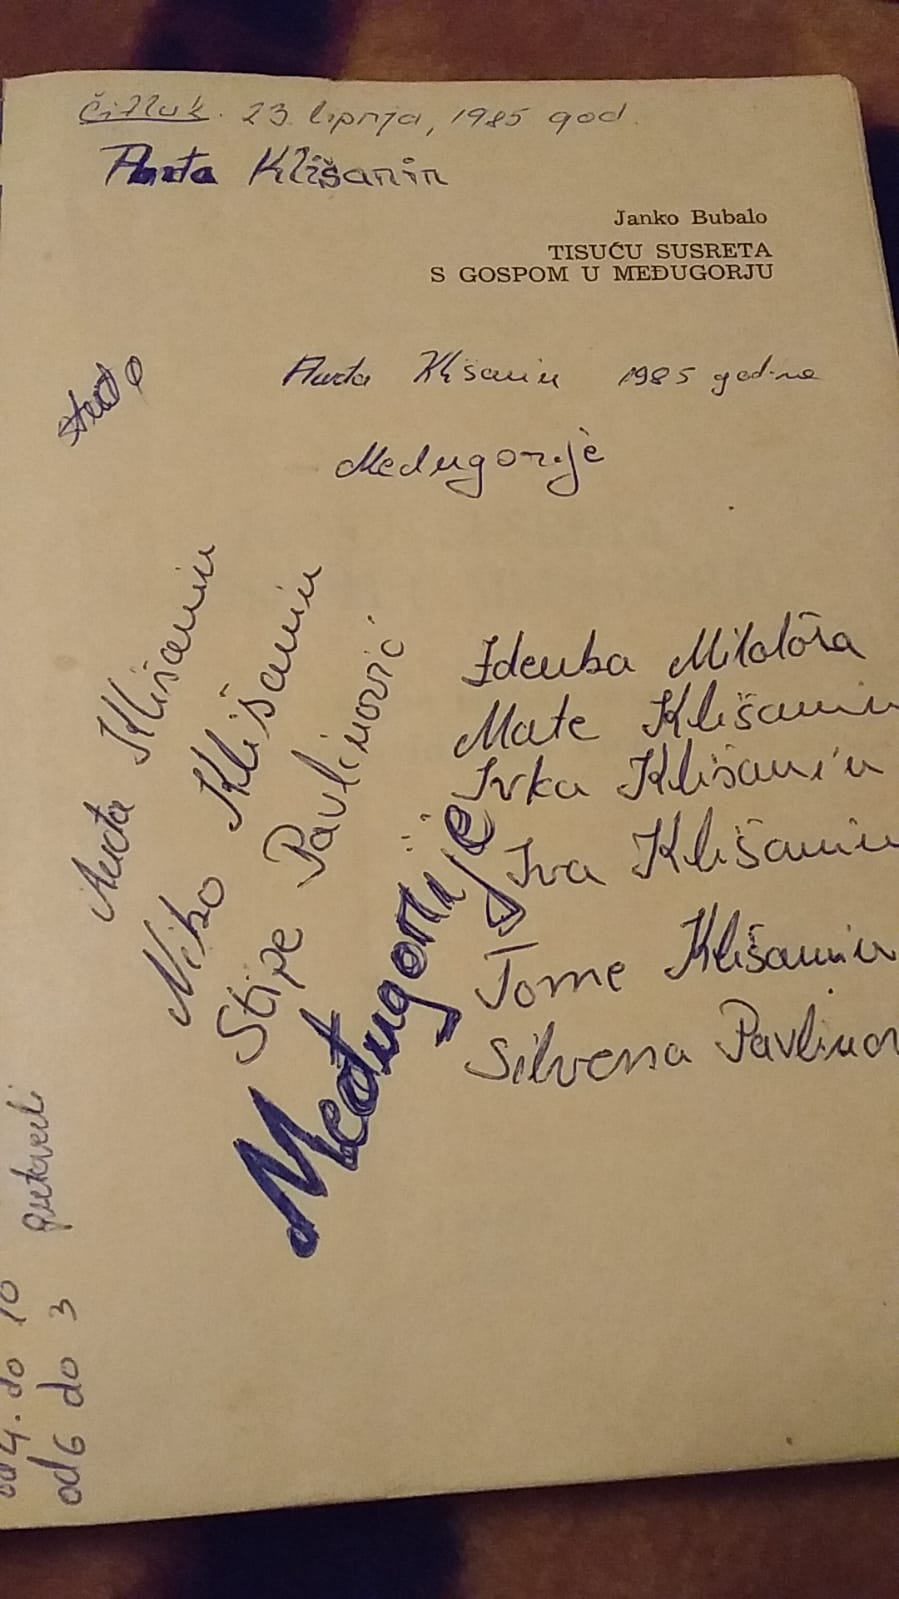 Čitluk. 23. lipnja, 1985 god.
Anđa Klišanin
Janko Bubalo
TISUĆU SUSRETA
S GOSPOM U MEĐUGORJU
Anđa Klišanin 1985 godine
Međugorje
Anđa Klišanin
Niko Klišanin
Stipe Pavlinović
Međugorije
Zdenka
Mate Klišanin
Ivka Klišanin
Iva Klišanin
Tome Klišanin
Silvena Pavlinov
od 4. do 10
od 6 do 3